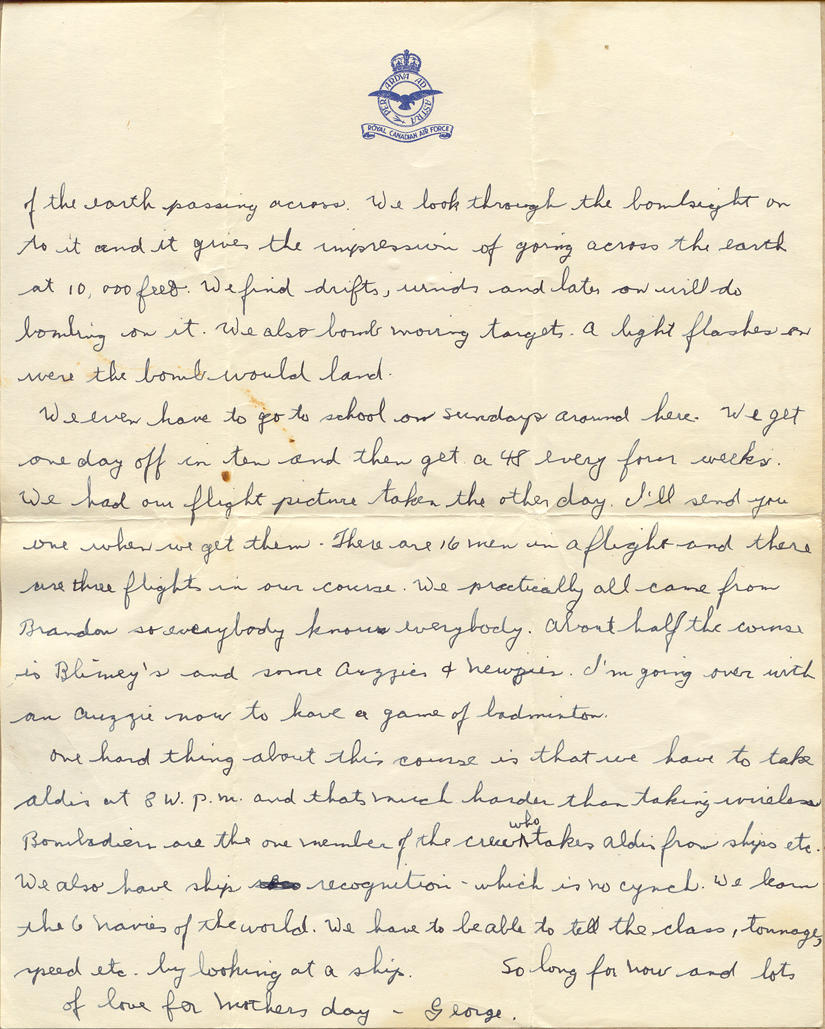 PER ARDVA AD ASTRA
ROYAL CANADIAN AIR FORCE
of the earth passing across. We look through the bombsight on
to it and it gives the impression of going across the earth
at 10,000 feet. We find drifts, winds and later on will do
bombing on it. We also bomb moving targets. A light flashes on
were the bomb would land.
We even have to go to school on Sundays around here. We get
one day off in ten and then get a 48 every four weeks.
We had our flight picture taken the other day. I'll send you
one when we get them. There are 16 men in a flight and there
are three flights in our course. We practically all came from
Brandon so everybody knows everybody. About half the course
is Blimey's and some Auzzies & Newzies. I'm going over with
an Auzzie now to have a game of badminton.
One hard thing about this course is that we have to take
aldis at 8 W.p.m. and thats much harder than taking wireless
Bombadiers are the one member of the crew who takes aldis from ships etc.
We also have ship recognition - which is no cynch. We learn
the 6 navies of the world. We have to be able to tell the class, tonnage,
speed etc. by looking at a ship. So long for now and lots
of love for Mothers day - George.